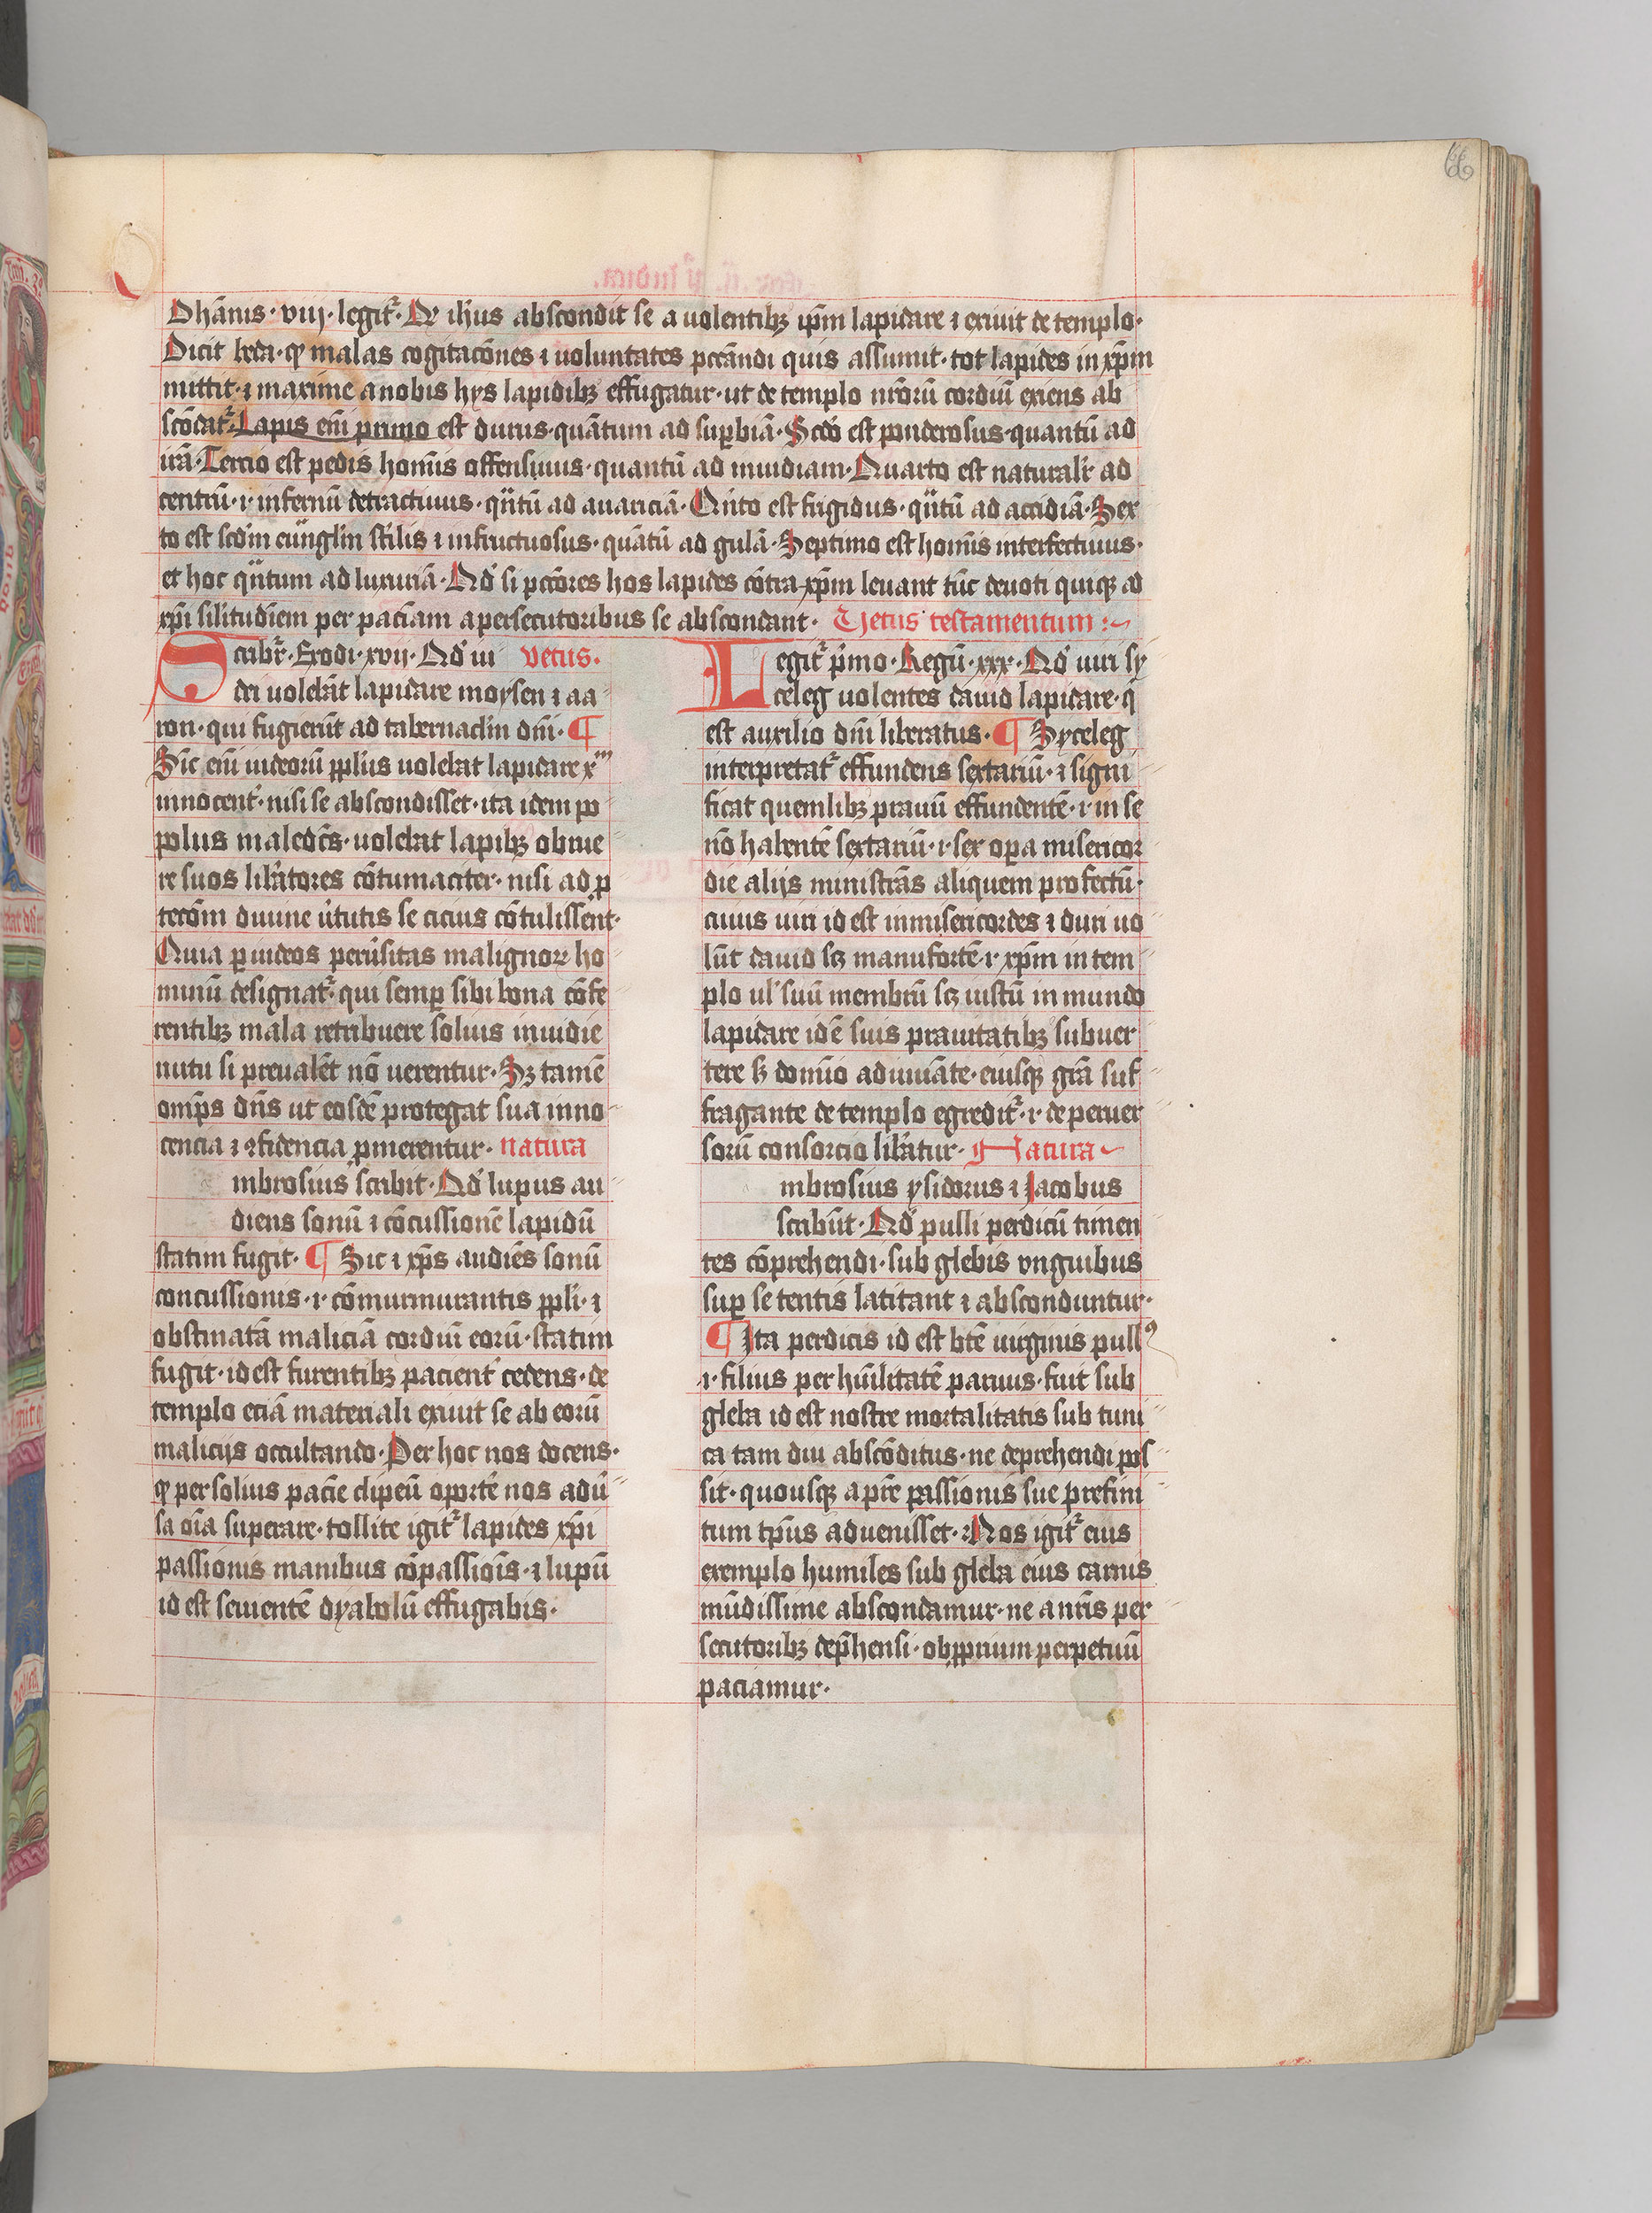 66
Ohānis · viij · legit᷑ · Qď ih̄us abscondit se a uolentibꝫ ip̄m lapidare ⁊ exiuit de templo ·
Dicit beda · ꝙ malas cogitacōnes ⁊ uoluntates peccādi quis assumit · tot lapides in xp̄m
mittit · ⁊ maxime a nobis hys lapidibꝫ effugatur · ut de templo nr̄orū cordiū exiens ab
scōdat᷑ · Lapis em̄ primo est durus · quātum ad suꝑbiā · Scďo est ponderosus · quantū ad
irā · Tercio est pedis homīs offensiuus · quantū ad inuidiam · Quarto est naturalr̄ ad
centrū · i · infernū detractiuus · qn̄tū ad auariciā · Qui̅to est frigidus · qn̄tū ad accidiā · Sex
to est scďm euūglm̄ st̄ilis ⁊ infructuosus · quātū ad gulā · Septimo est homīs interfectiuus ·
et hoc qn̄tum ad luxuriā · Nō si pcc̄ores hos lapides cōtra xp̄m leuant tūc deuoti quiqꝫ ad
xp̄i sil̄itudīem per paciam a persecutoribus se abscondant · Vetus testamentum :~
Scribr᷑ · Exodi · xvij · Qď iu vetus ·
dei uolebāt lapidare moysen ⁊ aa
ron · qui fugierūt ad tabernaclm̄ dn̄i · ¶
Sic em̄ iudeorū pplūs uolebat lapidare xm̄
innocent᷑ · nisi se abscondisset · ita idem po
polus maledc̄s · uolebat lapibꝫ obrue
re suos libātores cōtumaciter · nisi ad ꝓ
tecōm diuine ūtutis se cicius cōtulissent ·
Quia ꝑ iudeos perūsitas malignoꝝ ho
minū designat᷑ · qui semꝑ sibi bona cōfe
rentibꝫ mala retribuere solius inuidie
nutu si preualēt nō uerentur · Sꝫ tamē
omp̄s dn̄s ut eosdē protegat sua inno
cencia ⁊ ꝯfidencia ꝓmerentur · natura
mbrosius scribit · Qď lupus au
diens sonū ⁊ cōcussionē lapidū
statim fugit · ¶ Sic ⁊ xp̄s audiēs sonū
concussionis · i · cōmurmurantis ppl̄i · ⁊
obstinatā maliciā cordiū eorū · statim
fugit · id est furentibꝫ pacient᷑ cedens · de
templo eciā materiali exiuit se ab eorū
malicijs occultando · Per hoc nos docens ·
ꝙ per solius pacīe clipeū oportē nos adū
sa oīa superare · tollite igit᷑ lapides xp̄i
passionis manibus cōpassiōis · ⁊ lupū
id est seuientē dyabolū effugabis ·
Legit᷑ p̄mo · Regū · xxx · Qď uiri sy
celeg uolentes dauid lapidare · q̄
est auxilio dn̄i liberatus · ¶ Syceleg
interpretat᷑ effundens sextariū · ⁊ signi
ficat quemlibꝫ prauū effundentē · i · in se
nō habentē sextariū · i · sex oꝑa misericor
die alijs ministrās aliquem profectū ·
cuius uiri id est inmisericordes ⁊ duri uo
lūt dauid sꝫ manufortē · i · xp̄m in tem
plo ul᷑ suū membrū sꝫ iustū in mundo
lapidare idē suis prauitatibꝫ subuer
tere sꝫ domīo adiuuāte · eiusqꝫ grā suf
fragante de templo egredit᷑ · i · de peruer
sorū consorcio libātur · Natura ~
mbrosius ysidorus ⁊ Jacobus
scribūt · Qď pulli perdicū timen
tes cōprehendi · sub glebis vnguibus
suꝑ se tentis latitant ⁊ absconduntur ·
¶ Ita perdicis id est btē uirginis pullꝰ
i · filius per hūilitatē paruus · fuit sub
gleba id est nostre mortalitatis sub tuni
ca tam diu abscōditus · ne deprehendi pos
sit · quousqꝫ a pr̄e passionis sue prefini
tum tp̄us aduenisset · Nos igit᷑ eius
exemplo humiles sub gleba eius carnis
mūdissime abscondamur · ne a nr̄is per
secutoribꝫ dep̄hensi · obꝓprium perpetuū
paciamur ·